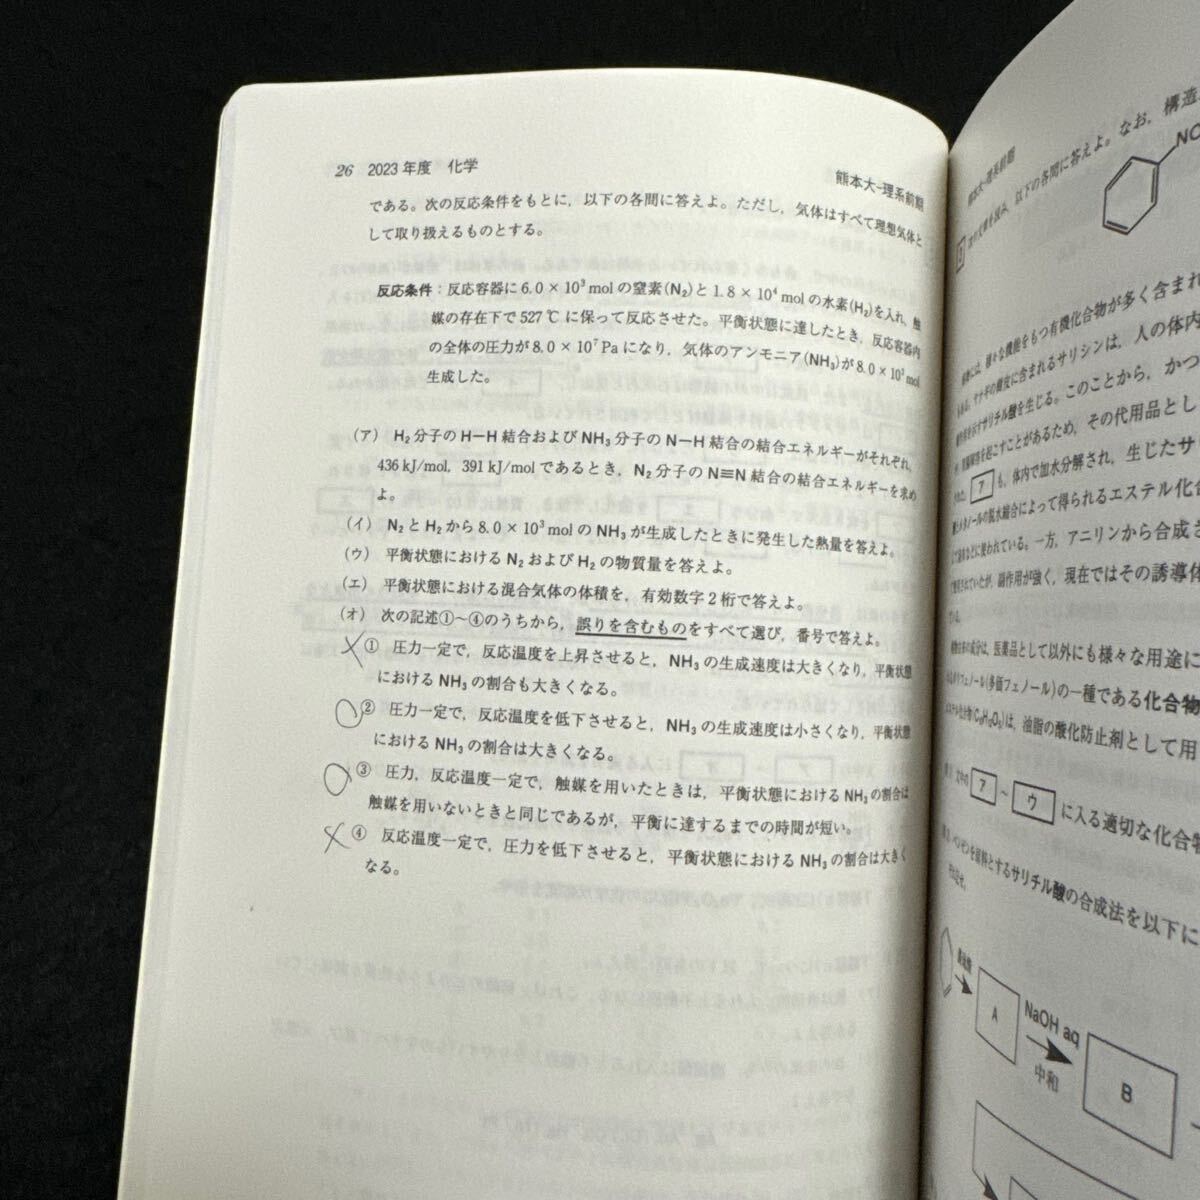 26 2023年度 化学
熊本大-理系前期
である。次の反応条件をもとに，以下の各問に答えよ。ただし，気体はすべて理想気体と
して取り扱えるものとする。
反応条件：反応容器に6.0×10³molの窒素(N₂)と1.8×10⁴molの水素(H₂)を入れ，触
媒の存在下で527℃に保って反応させた。平衡状態に達したとき，反応容器内
の全体の圧力が8.0×10⁷Paになり，気体のアンモニア(NH₃)が8.0×10³mol
生成した。
(ア) H₂分子のH－H結合およびNH₃分子のN－H結合の結合エネルギーがそれぞれ，
436kJ/mol，391kJ/molであるとき，N₂分子のN≡N結合の結合エネルギーを求め
よ。
(イ) N₂とH₂から8.0×10³molのNH₃が生成したときに発生した熱量を答えよ。
(ウ) 平衡状態におけるN₂およびH₂の物質量を答えよ。
(エ) 平衡状態における混合気体の体積を，有効数字2桁で答えよ。
(オ) 次の記述①～④のうちから，誤りを含むものをすべて選び，番号で答えよ。
① 圧力一定で，反応温度を上昇させると，NH₃の生成速度は大きくなり，平衡状態
におけるNH₃の割合も大きくなる。
② 圧力一定で，反応温度を低下させると，NH₃の生成速度は小さくなり，平衡状態
におけるNH₃の割合は大きくなる。
③ 圧力，反応温度一定で，触媒を用いたときは，平衡状態におけるNH₃の割合は
触媒を用いないときと同じであるが，平衡に達するまでの時間が短い。
④ 反応温度一定で，圧力を低下させると，平衡状態におけるNH₃の割合は大きく
なる。
熊本大-理系前期
以下の各問に答えよ。なお，構造
機能をもつ有機化合物が多く含まれ
ヤナギの樹皮に含まれるサリシンは，人の体内
サリチル酸を生じる。このことから，かつ
を起こすことがあるため，その代用品とし
ア も，体内で加水分解され，生じたサ
の脱水縮合によって得られるエステル化合
に使われている。一方，アニリンから合成さ
れていたが，副作用が強く，現在ではその誘導体
いる。
の成分は，医薬品として以外にも様々な用途に
フェノール(多価フェノール)の一種である化合物
は，油脂の酸化防止剤として用
ア ～ ウ に入る適切な化合物
を原料とするサリチル酸の合成法を以下に
A
NaOH aq
中和
B